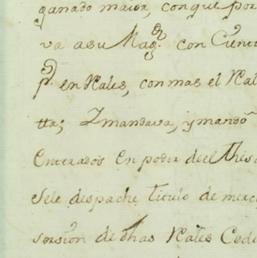 ganado maior, con que por
va a su Mag.d con Cient
p.s en Rales, con mas el Ral
tta; I mandava, y mandò
Enterados En poder del thes
Se le despache titulo de merc
session de dhas Rales Cedu